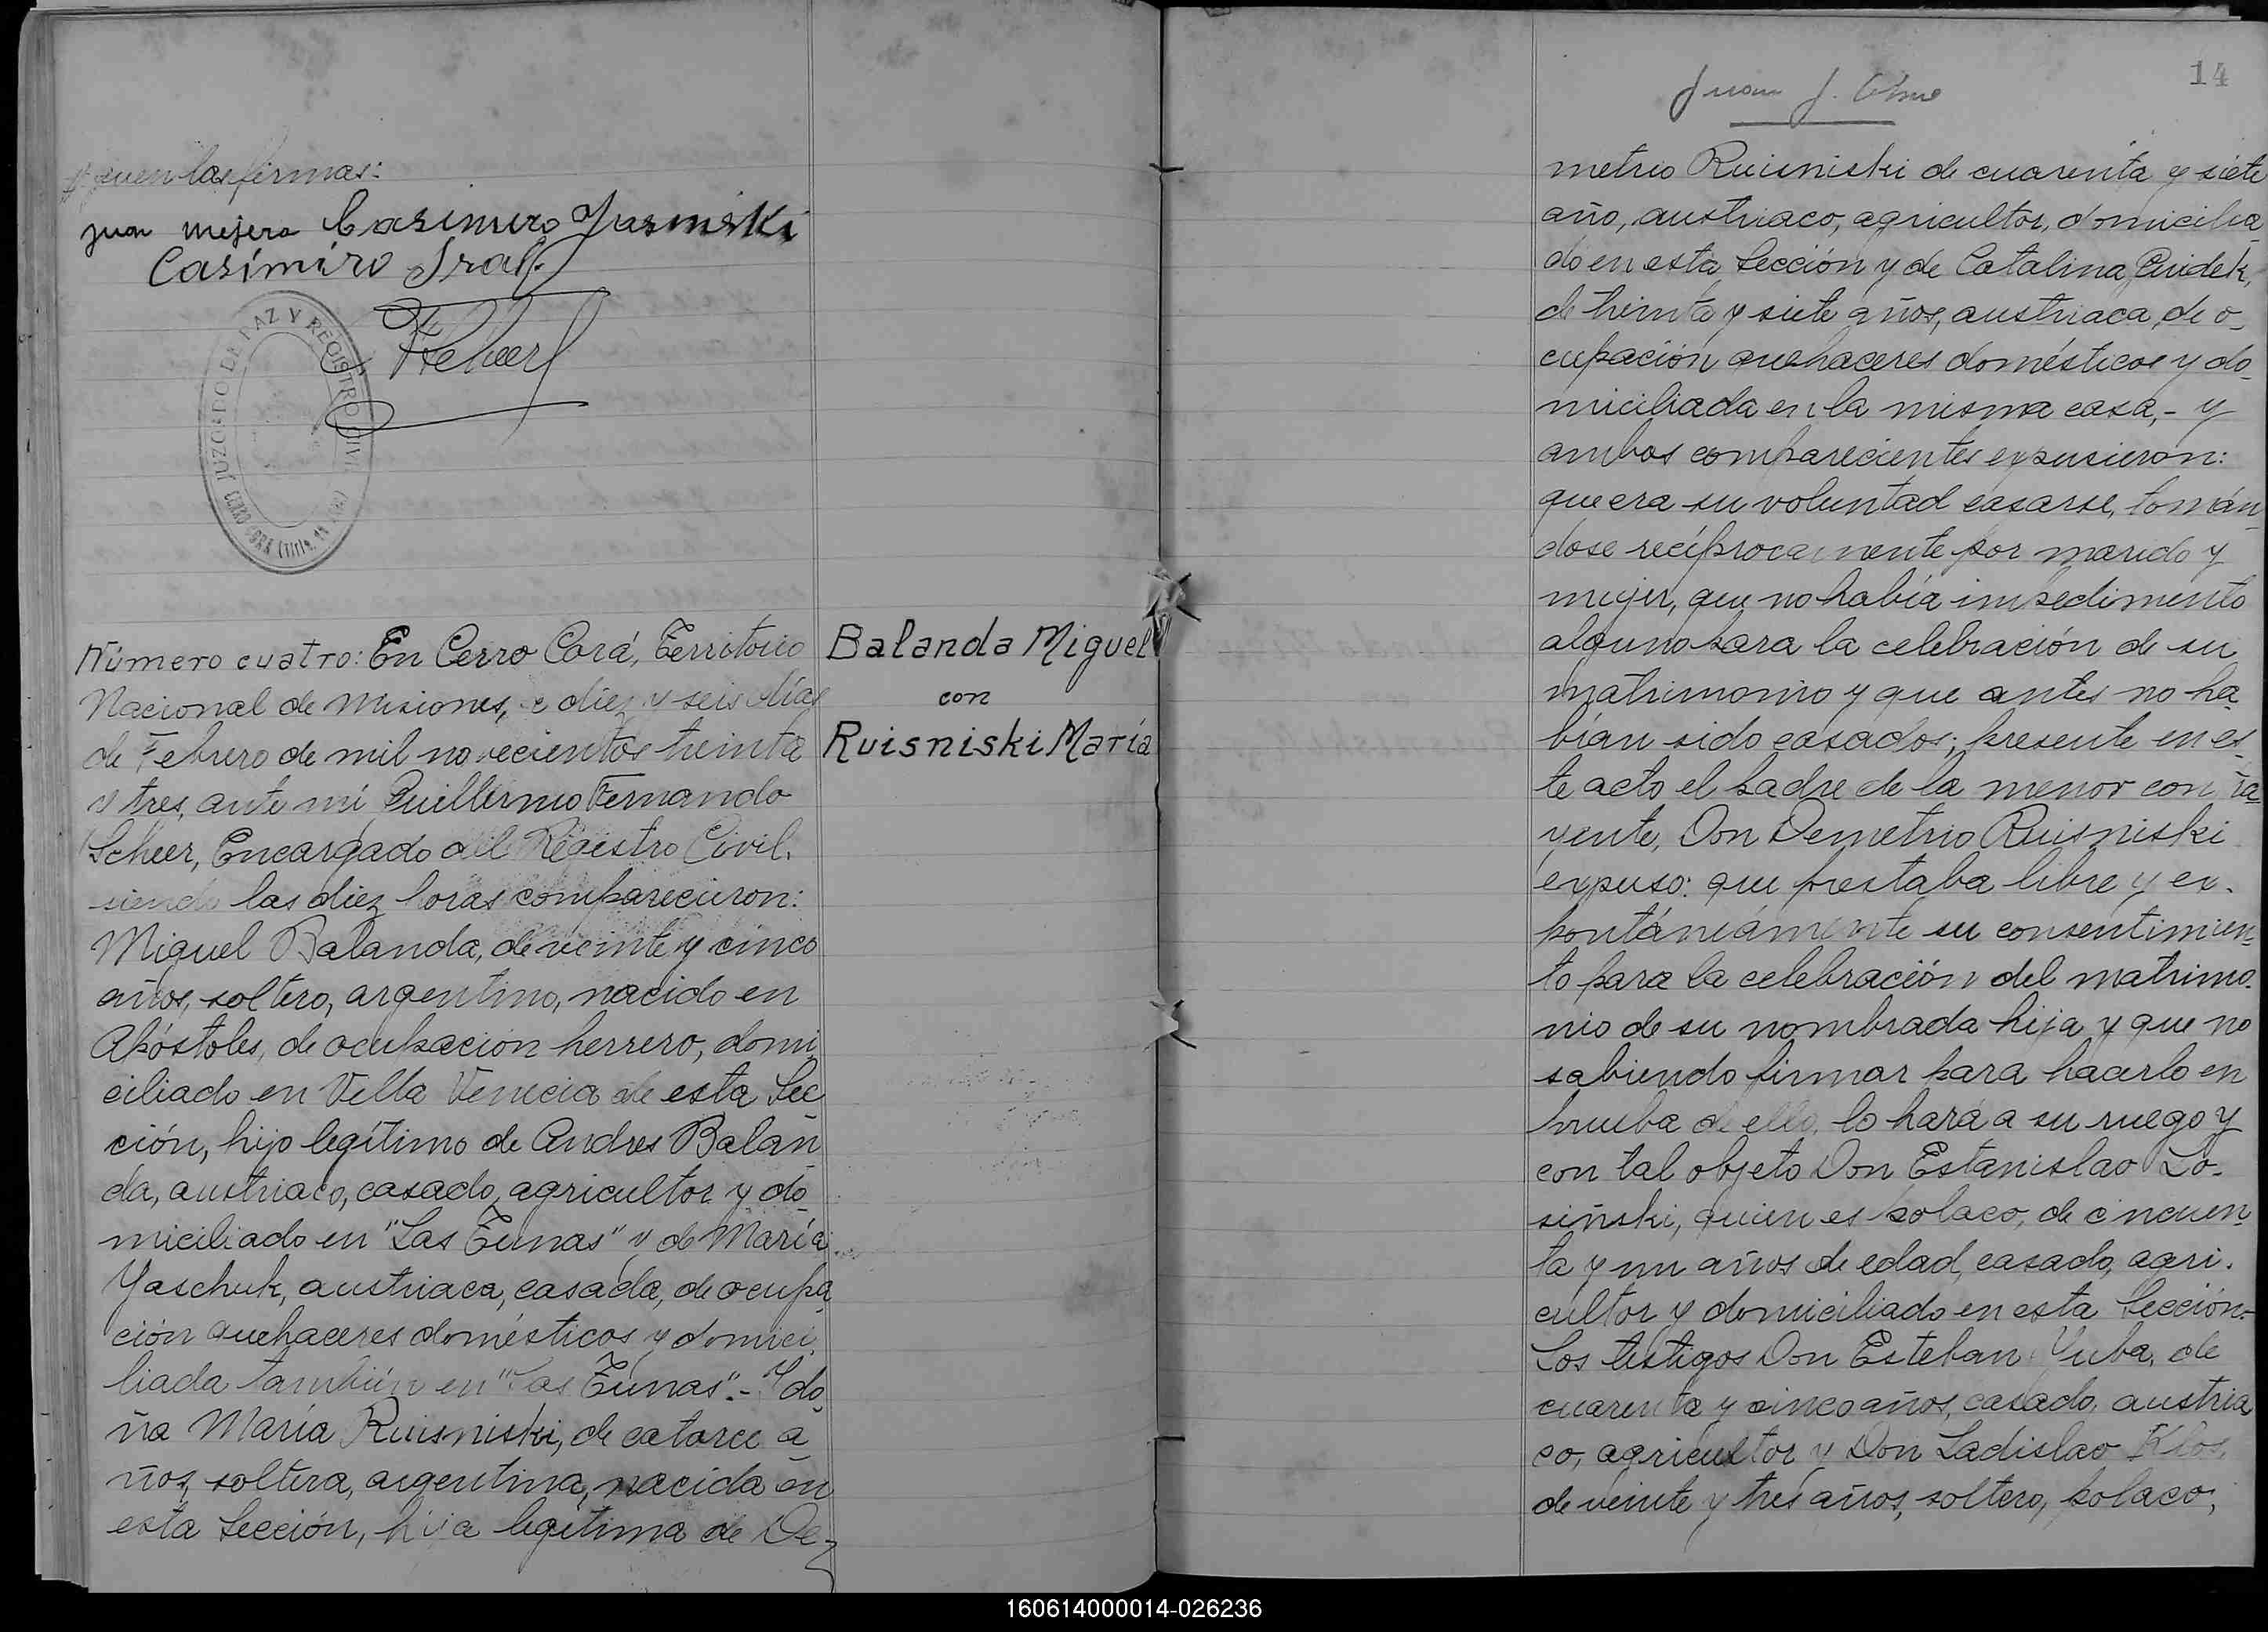 siguen las firmas:
Juan Mejera Casimiro Jasinski
Casimiro
JUZGADO DE PAZ Y REGISTRO CIVIL
Número cuatro: En Cerro Corá, Territorio
Nacional de Misiones, a diez y seis días
de Febrero de mil novecientos treinta
y tres, ante mi Guillermo Fernando
Scheer, Encargado del Registro Civil,
siendo las diez horas comparecieron:
Miguel Balanda, de veinte y cinco
años, soltero, argentino, nacido en
Apóstoles, de ocupación herrero, domi
ciliado en Villa Venecia de esta Sec
ción, hijo legítimo de Andres Balan
da, austriaco, casado, agricultor y do
miciliado en "Las Tunas" y de María
Yaschuk, austriaca, casada, de ocupa
ción quehaceres domésticos y domici
liada también en "Las Tunas".- Y do
ña María Ruisniski, de catorce a
ños, soltera, argentina, nacida en
esta Sección, hija legítima de De-
Balanda Miguel
con
Ruisniski María
14
Juan J.
metrio Ruisniski de cuarenta y siete
año, austriaco, agricultor, domicilia
do en esta Sección y de Catalina
de treinta y siete años, austriaca, de o-
cupación quehaceres domésticos y do-
miciliada en la misma casa,- y
ambos comparecientes expusieron:
que era su voluntad casarse, tomán-
dose recíprocamente por marido y
mujer, que no había impedimento
alguno para la celebración de su
matrimonio y que antes no ha-
bían sido casados; presente en es-
te acto el padre de la menor contra
yente, Don Demetrio Ruisniski
expuso: que prestaba libre y es-
pontáneamente su consentimien-
to para la celebración del matrimo-
nio de su nombrada hija y que no
sabiendo firmar para hacerlo en
prueba de ello, lo hará a su ruego y
con tal objeto Don Estanislao Lo-
siñski, quien es polaco, de cincuen-
ta y un años de edad, casado, agri-
cultor y domiciliado en esta Sección.-
Los testigos Don Esteban Yuba, de
cuarenta y cinco años, casado, austria
co, agricultor y Don Ladislao Klos,
de veinte y tres años, soltero, polaco,
160614000014-026236